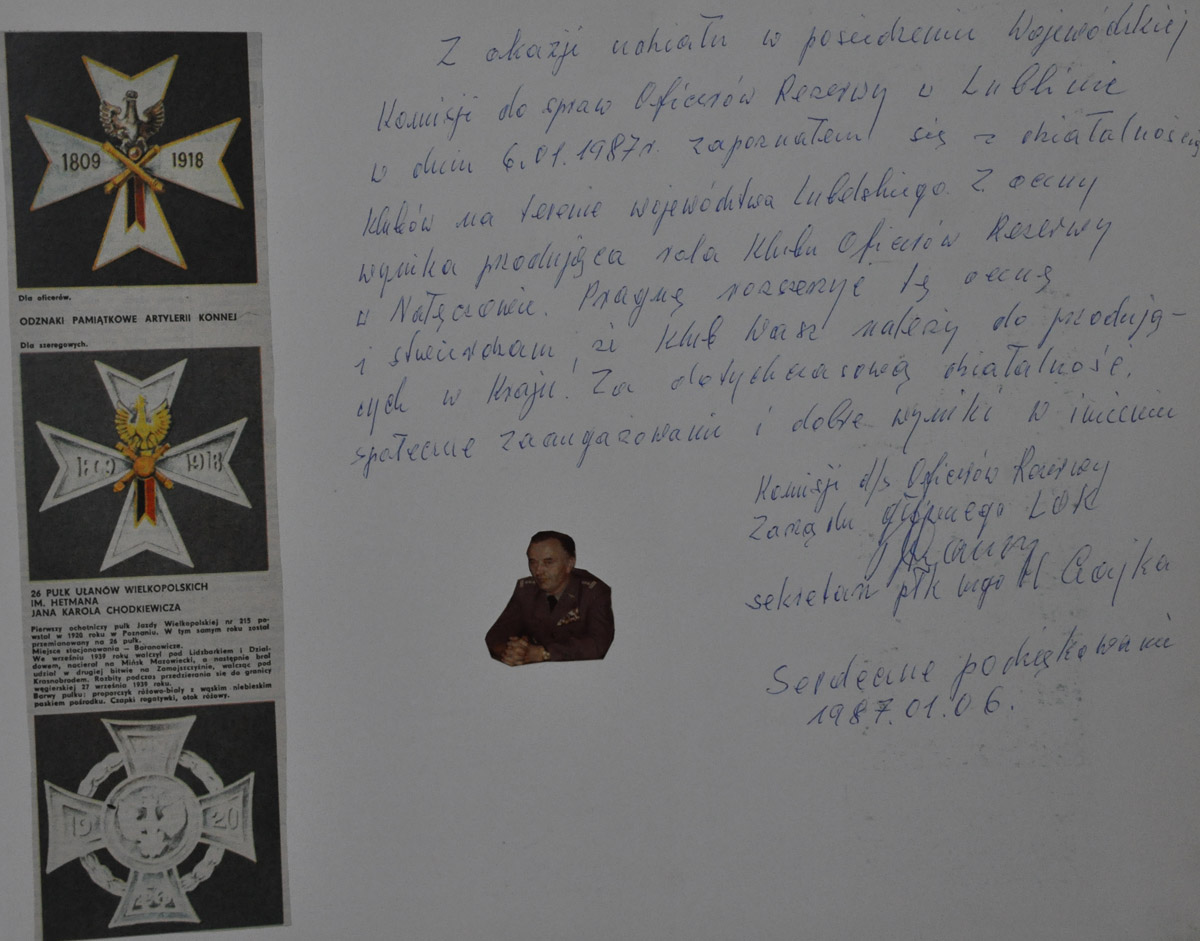 1809 1918
Dla oficerów.
ODZNAKI PAMIĄTKOWE ARTYLERII KONNEJ
Dla szeregowych.
1809 1918
26 PUŁK UŁANÓW WIELKOPOLSKICH
IM. HETMANA
JANA KAROLA CHODKIEWICZA
Pierwszy ochotniczy pułk Jazdy Wielkopolskiej nr 215 po-
wstał w 1920 roku w Poznaniu. W tym samym roku został
przemianowany na 26 pułk.
Miejsce stacjonowania – Baranowicze.
We wrześniu 1939 roku walczył pod Lidzbarkiem i Dział-
dowem, nacierał na Mińsk Mazowiecki, a następnie brał
udział w drugiej bitwie na Zamojszczyźnie, walcząc pod
Krasnobrodem. Rozbity podczas przedzierania się do granicy
węgierskiej 27 września 1939 roku.
Barwy pułku: proporczyk różowo-biały z wąskim niebieskim
paskiem pośrodku. Czapki rogatywki, otok różowy.
19 20
Z okazji udziału w posiedzeniu Wojewódzkiej
Komisji do spraw Oficerów Rezerwy w Lublinie
w dniu 6.01.1987r. zapoznałem się z działalnością
Klubów na terenie województwa Lubelskiego. Z oceny
wynika przodująca rola Klubu Oficerów Rezerwy
w Nałęczowie. Pragnę rozszerzyć tę ocenę
i stwierdzam, że Klub Wasz należy do przodują-
cych w Kraju! Za dotychczasową działalność,
społeczne zaangażowanie i dobre wyniki w imieniu
Komisji d/s Oficerów Rezerwy
Zarządu Głównego LOK
sekretarz płk mgr M Czajka
Serdeczne podziękowanie
1987.01.06.